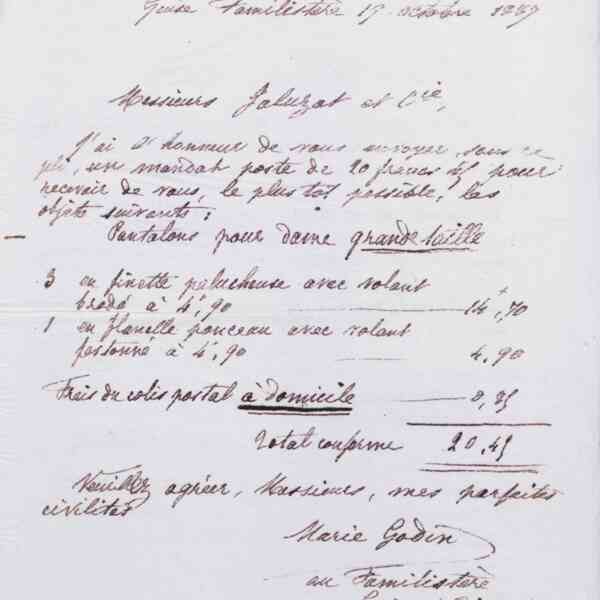 Guise Familistère 17 octobre 1889
Messieurs Jaluzot et Cie,
J'ai l'honneur de vous envoyer, sous ce
pli, un mandat poste de 20 francs 45 pour
recevoir de vous, le plus tôt possible, les
objets suivants :
Pantalons pour dame grande taille
3 en finette pelucheuse avec volant
brodé à 4f,90 14f,70
1 en flanelle ponceau avec volant
festonné à 4f,90 4,90
Frais du colis postal à domicile 0,85
Total conforme 20,45
Veuillez agréer, Messieurs, mes parfaites
civilités
Marie Godin
au Familistère